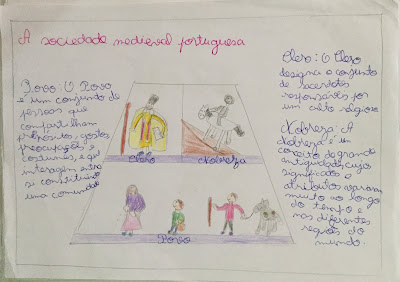 A sociedade medieval portuguesa
Povo: O Povo
é um conjunto de
pessoas que
compartilham
propósitos, gostos,
preocupações e
costumes, e que
interagem entre
si constituindo
uma comunidade
Clero
Nobreza
Povo
Clero: O Clero
designa o conjunto
de sacerdotes
responsáveis por
um culto religioso
Nobreza: A
Nobreza é um
conceito de grande
antiguidade, cujos
significados e
atributos variaram
muito ao longo
do tempo e
nas diferentes
regiões do
mundo.